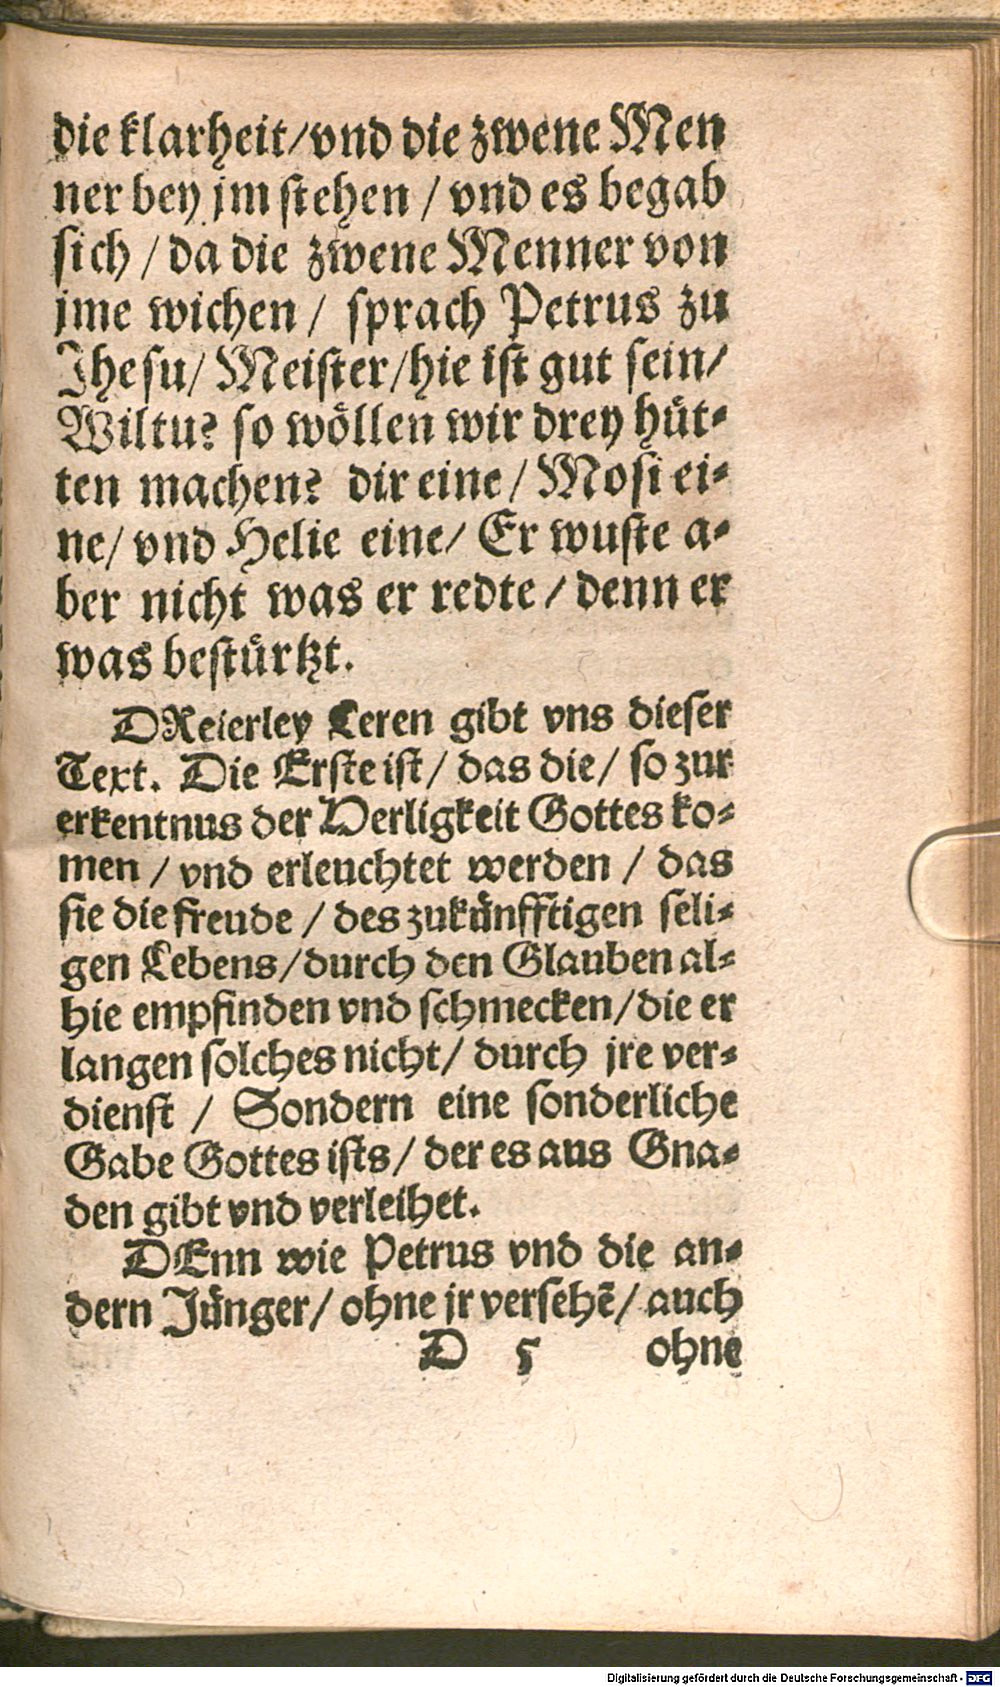 die klarheit/vnd die zwene Men
ner bey jm stehen / vnd es begab
sich / da die zwene Menner von
jme wichen / sprach Petrus zu
Jhesu/ Meister/hie ist gut sein/
Wiltu? so wöllen wir drey hüt-
ten machen? dir eine / Mosi ei-
ne/ vnd Helie eine/ Er wuste a-
ber nicht was er redte / denn er
was bestürtzt.
DReierley Leren gibt vns dieser
Text. Die Erste ist/ das die/ so zur
erkentnus der Herligkeit Gottes ko-
men / vnd erleuchtet werden / das
sie die freude / des zukünfftigen seli-
gen Lebens/durch den Glauben al-
hie empfinden vnd schmecken/die er
langen solches nicht/ durch jre ver-
dienst / Sondern eine sonderliche
Gabe Gottes ists/ der es aus Gna-
den gibt vnd verleihet.
DEnn wie Petrus vnd die an-
dern Jünger/ ohne jr versehē/ auch
D 5 ohne
Digitalisierung gefördert durch die Deutsche Forschungsgemeinschaft - DFG